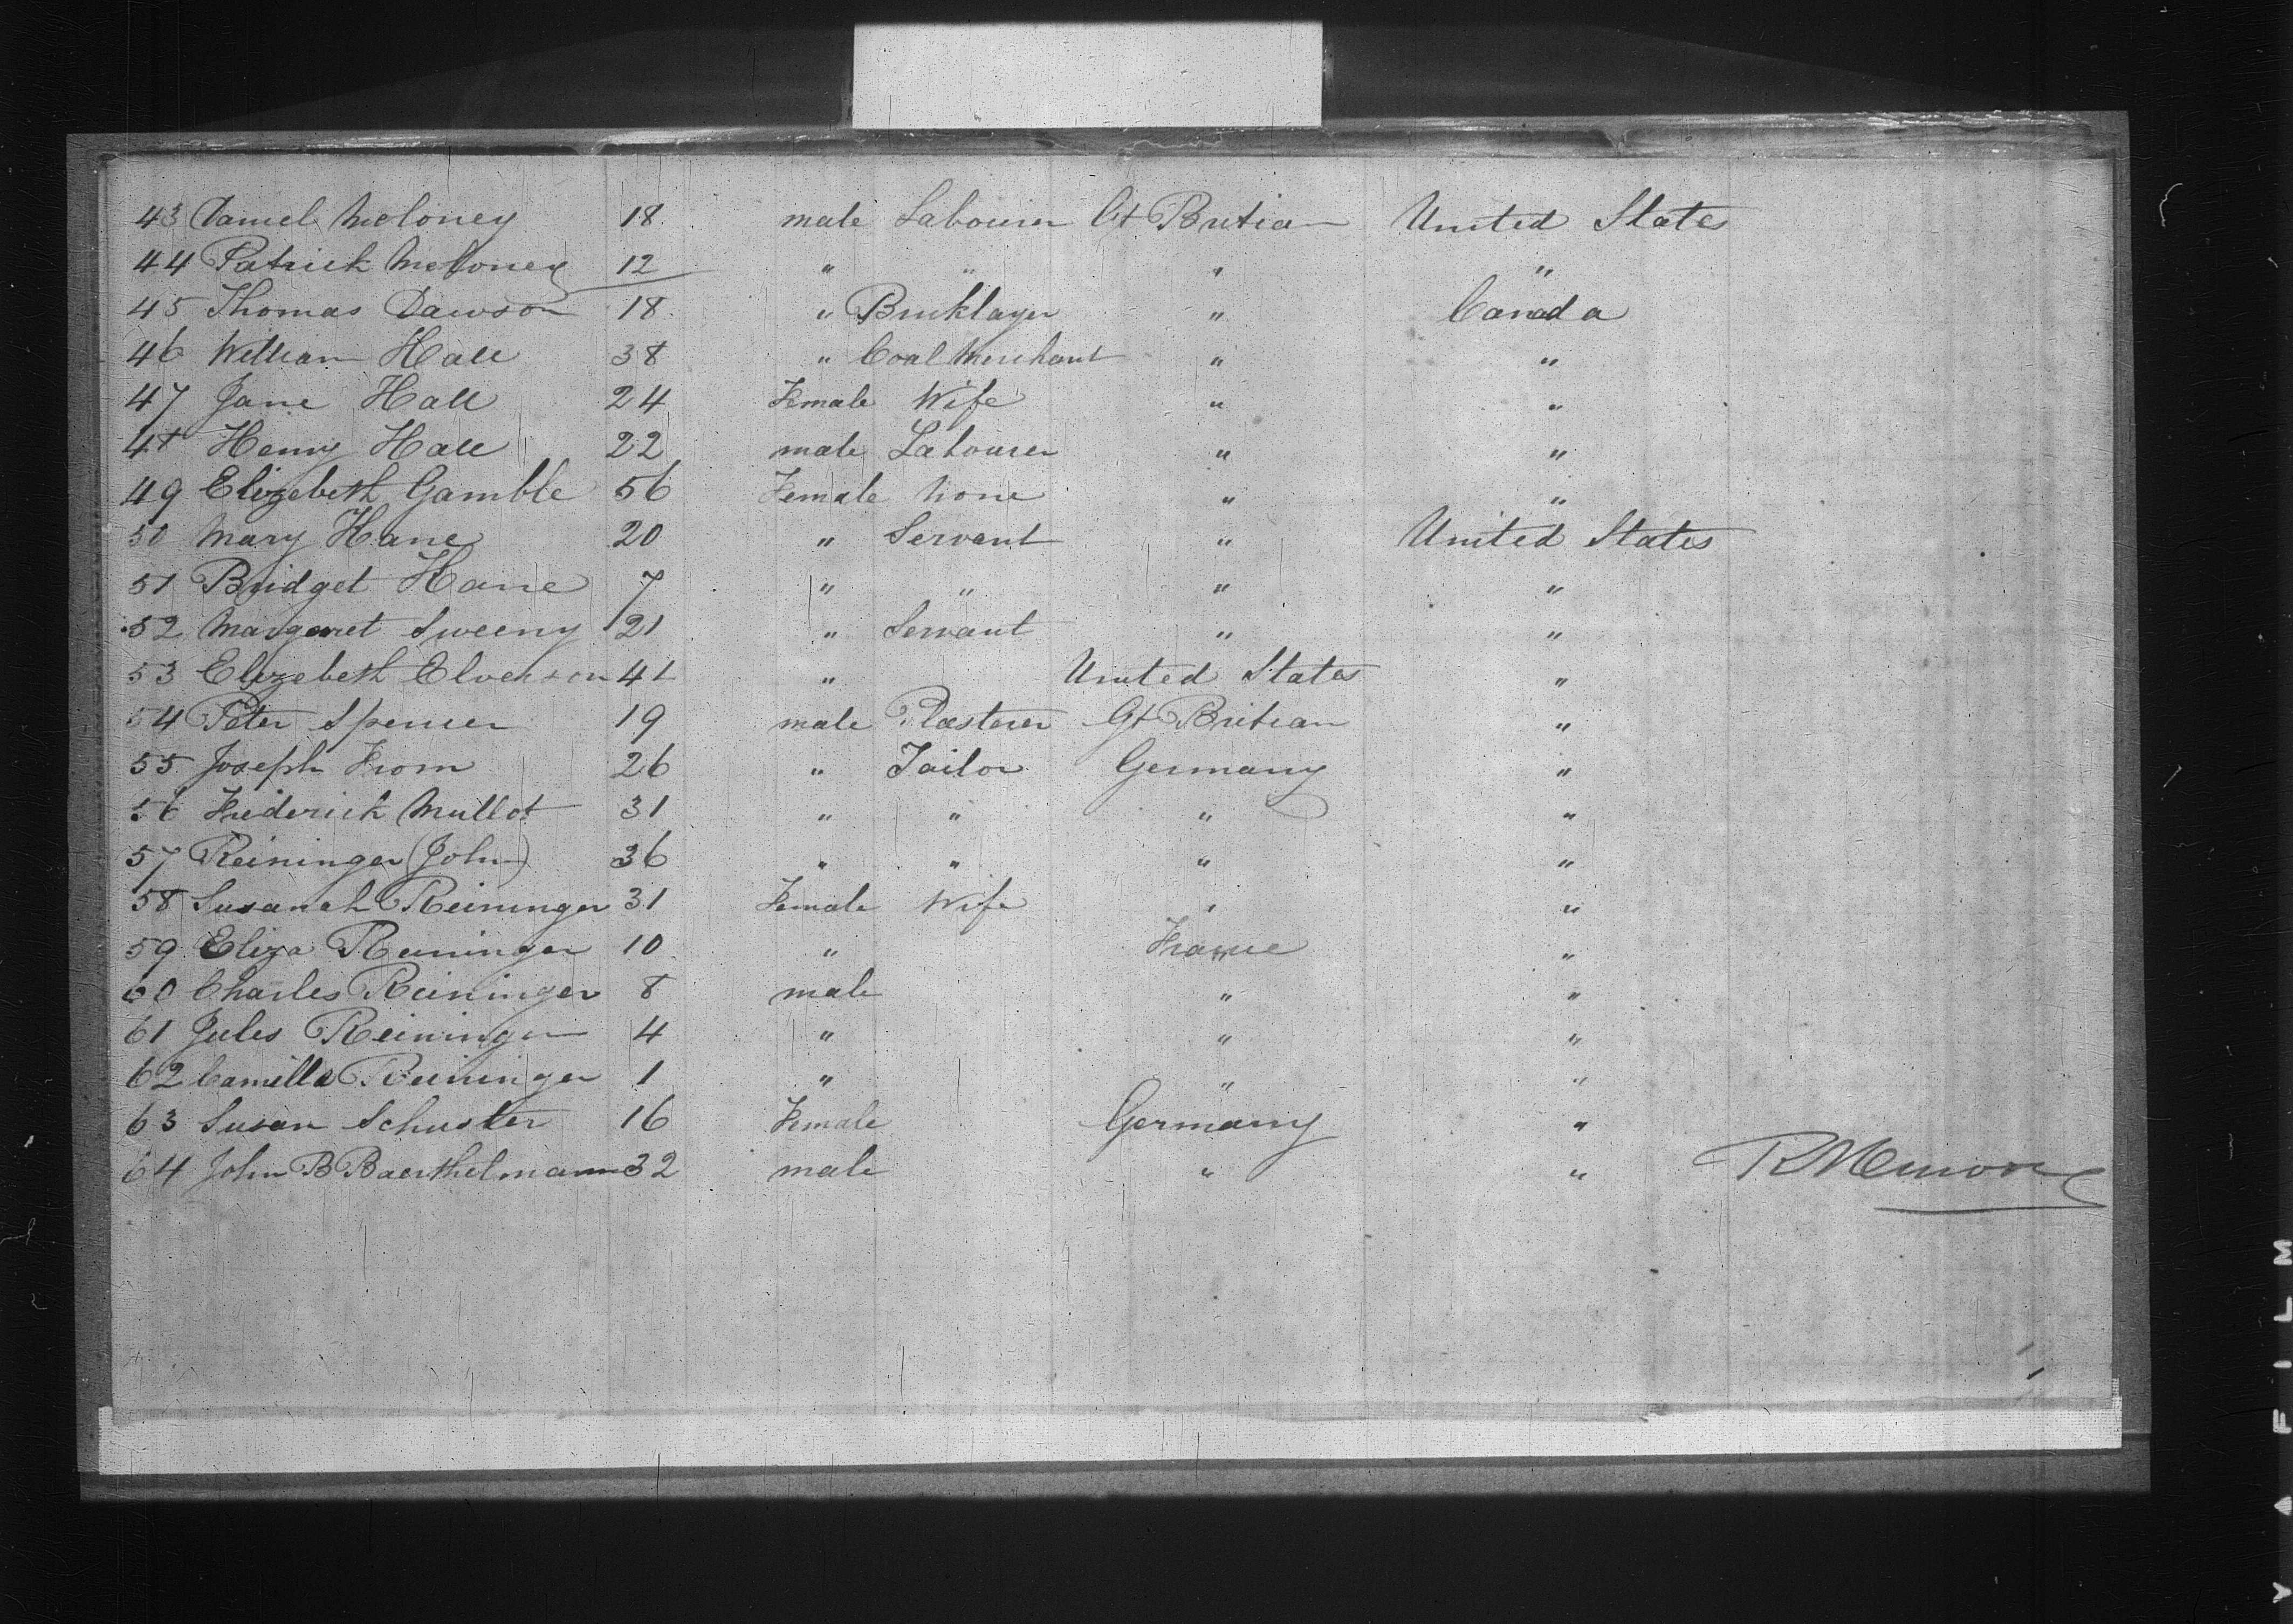 43 Daniel Moloney 18 male Labourer Gt Britian United States
44 Patrick Moloney 12 " " " "
45 Thomas Dawson 18 " Bricklayer " Canada
46 William Hall 38 " Coal Merchant " "
47 Jane Hall 24 Female Wife " "
48 Henry Hall 22 male Labourer " "
49 Elizebeth Gamble 56 Female None " "
50 Mary Hane 20 " Servant " United States
51 Bridget Hane 7 " " " "
52 Margaret Sweeny 21 " Servant " "
53 Elizebeth Elverson 41 " United States "
54 Peter Spencer 19 male Plasterer Gt Britian "
55 Joseph From 26 " Tailor Germany "
56 Frederick Mullot 31 " " " "
57 Reininger (John) 36 " " " "
58 Susanah Reininger 31 Female Wife " "
59 Eliza Reininger 10 " France "
60 Charles Reininger 8 male " "
61 Jules Reininger 4 " " "
62 Camille Reininger 1 " " "
63 Susan Schuster 16 Female Germany "
64 John B Baerthelmann 32 male " "
FILM